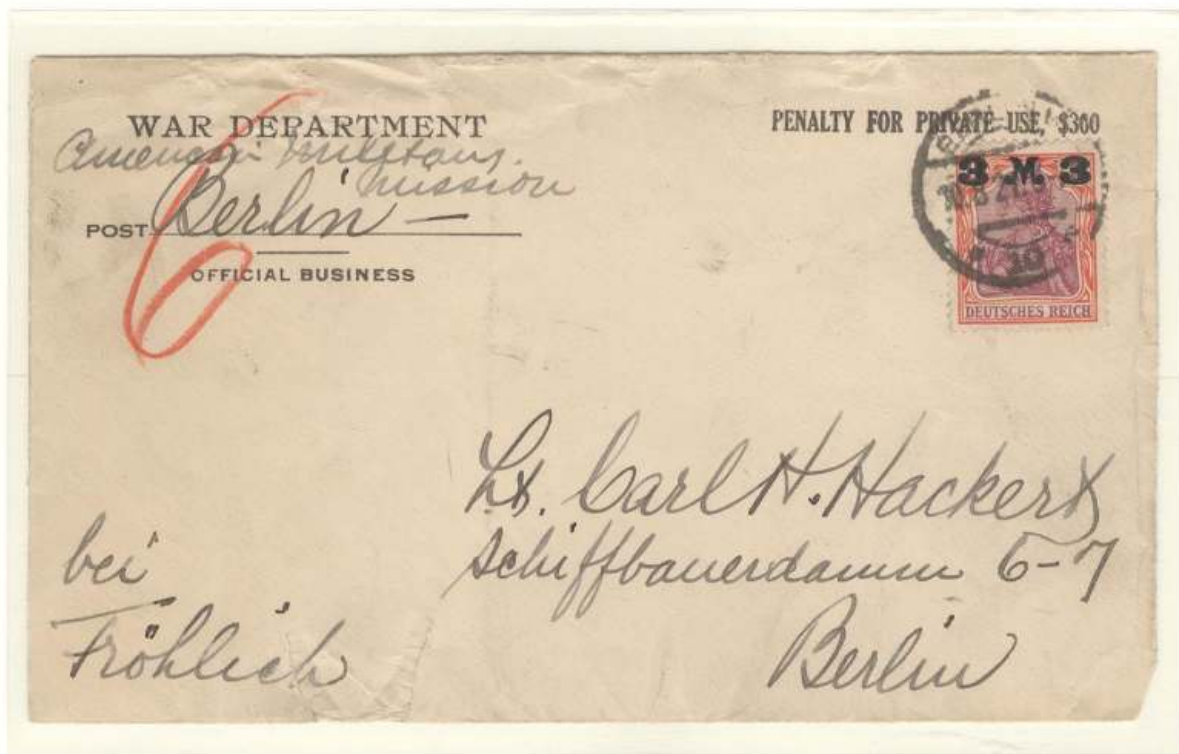 WAR DEPARTMENT
American Military.
Mission
POST Berlin —
OFFICIAL BUSINESS
6
PENALTY FOR PRIVATE USE, $300
3 M 3
10
DEUTSCHES REICH
Lt. Carl H. Hackert
Schiffbauerdamm 6-7
Berlin
bei
Fröhlich